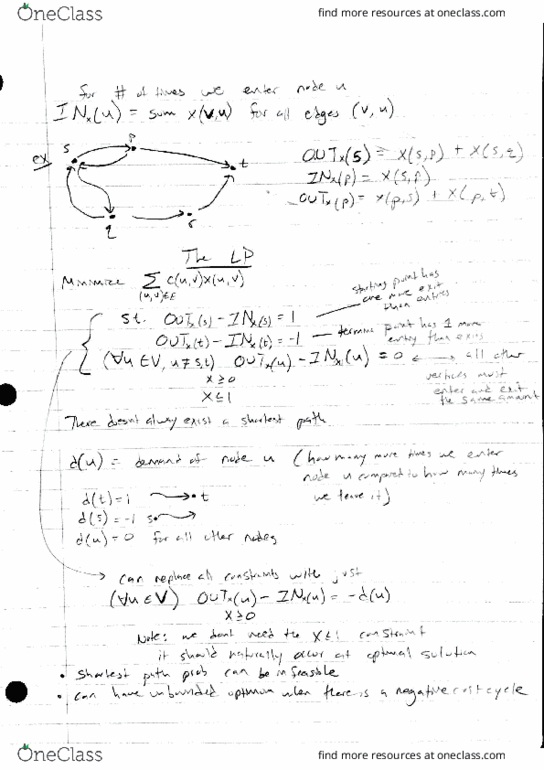 OneClass
find more resources at oneclass.com
for # of times we enter node u
INₓ(u) = sum x(v,u) for all edges (v,u)
ex
s
p
t
q
r
OUTₓ(s) = x(s,p) + x(s,q)
INₓ(p) = x(s,p)
OUTₓ(p) = x(p,s) + x(p,t)
The LP
Minimize ∑ c(u,v)x(u,v)
(u,v)∈E
starting point has
one more exit
than entries
st. OUTₓ(s) - INₓ(s) = 1
OUTₓ(t) - INₓ(t) = -1 — terminal point has 1 more
entry than exits
(∀u∈V, u≠s,t) OUTₓ(u) - INₓ(u) = 0 ← all other
vertices must
enter and exit
the same amount
x≥0
x≤1
There doesn't alway exist a shortest path
d(u) = demand of node u (how many more times we enter
node u compared to how many times
we leave it)
d(t)=1 → t
d(s)=-1 s →
d(u)=0 for all other nodes
can replace all constraints with just
(∀u∈V) OUTₓ(u) - INₓ(u) = -d(u)
x≥0
Note: we dont need the x≤1 constraint
it should naturally occur at optimal solution
• Shortest path prob can be infeasible
• can have unbounded optimum when there is a negative cost cycle
OneClass
find more resources at oneclass.com